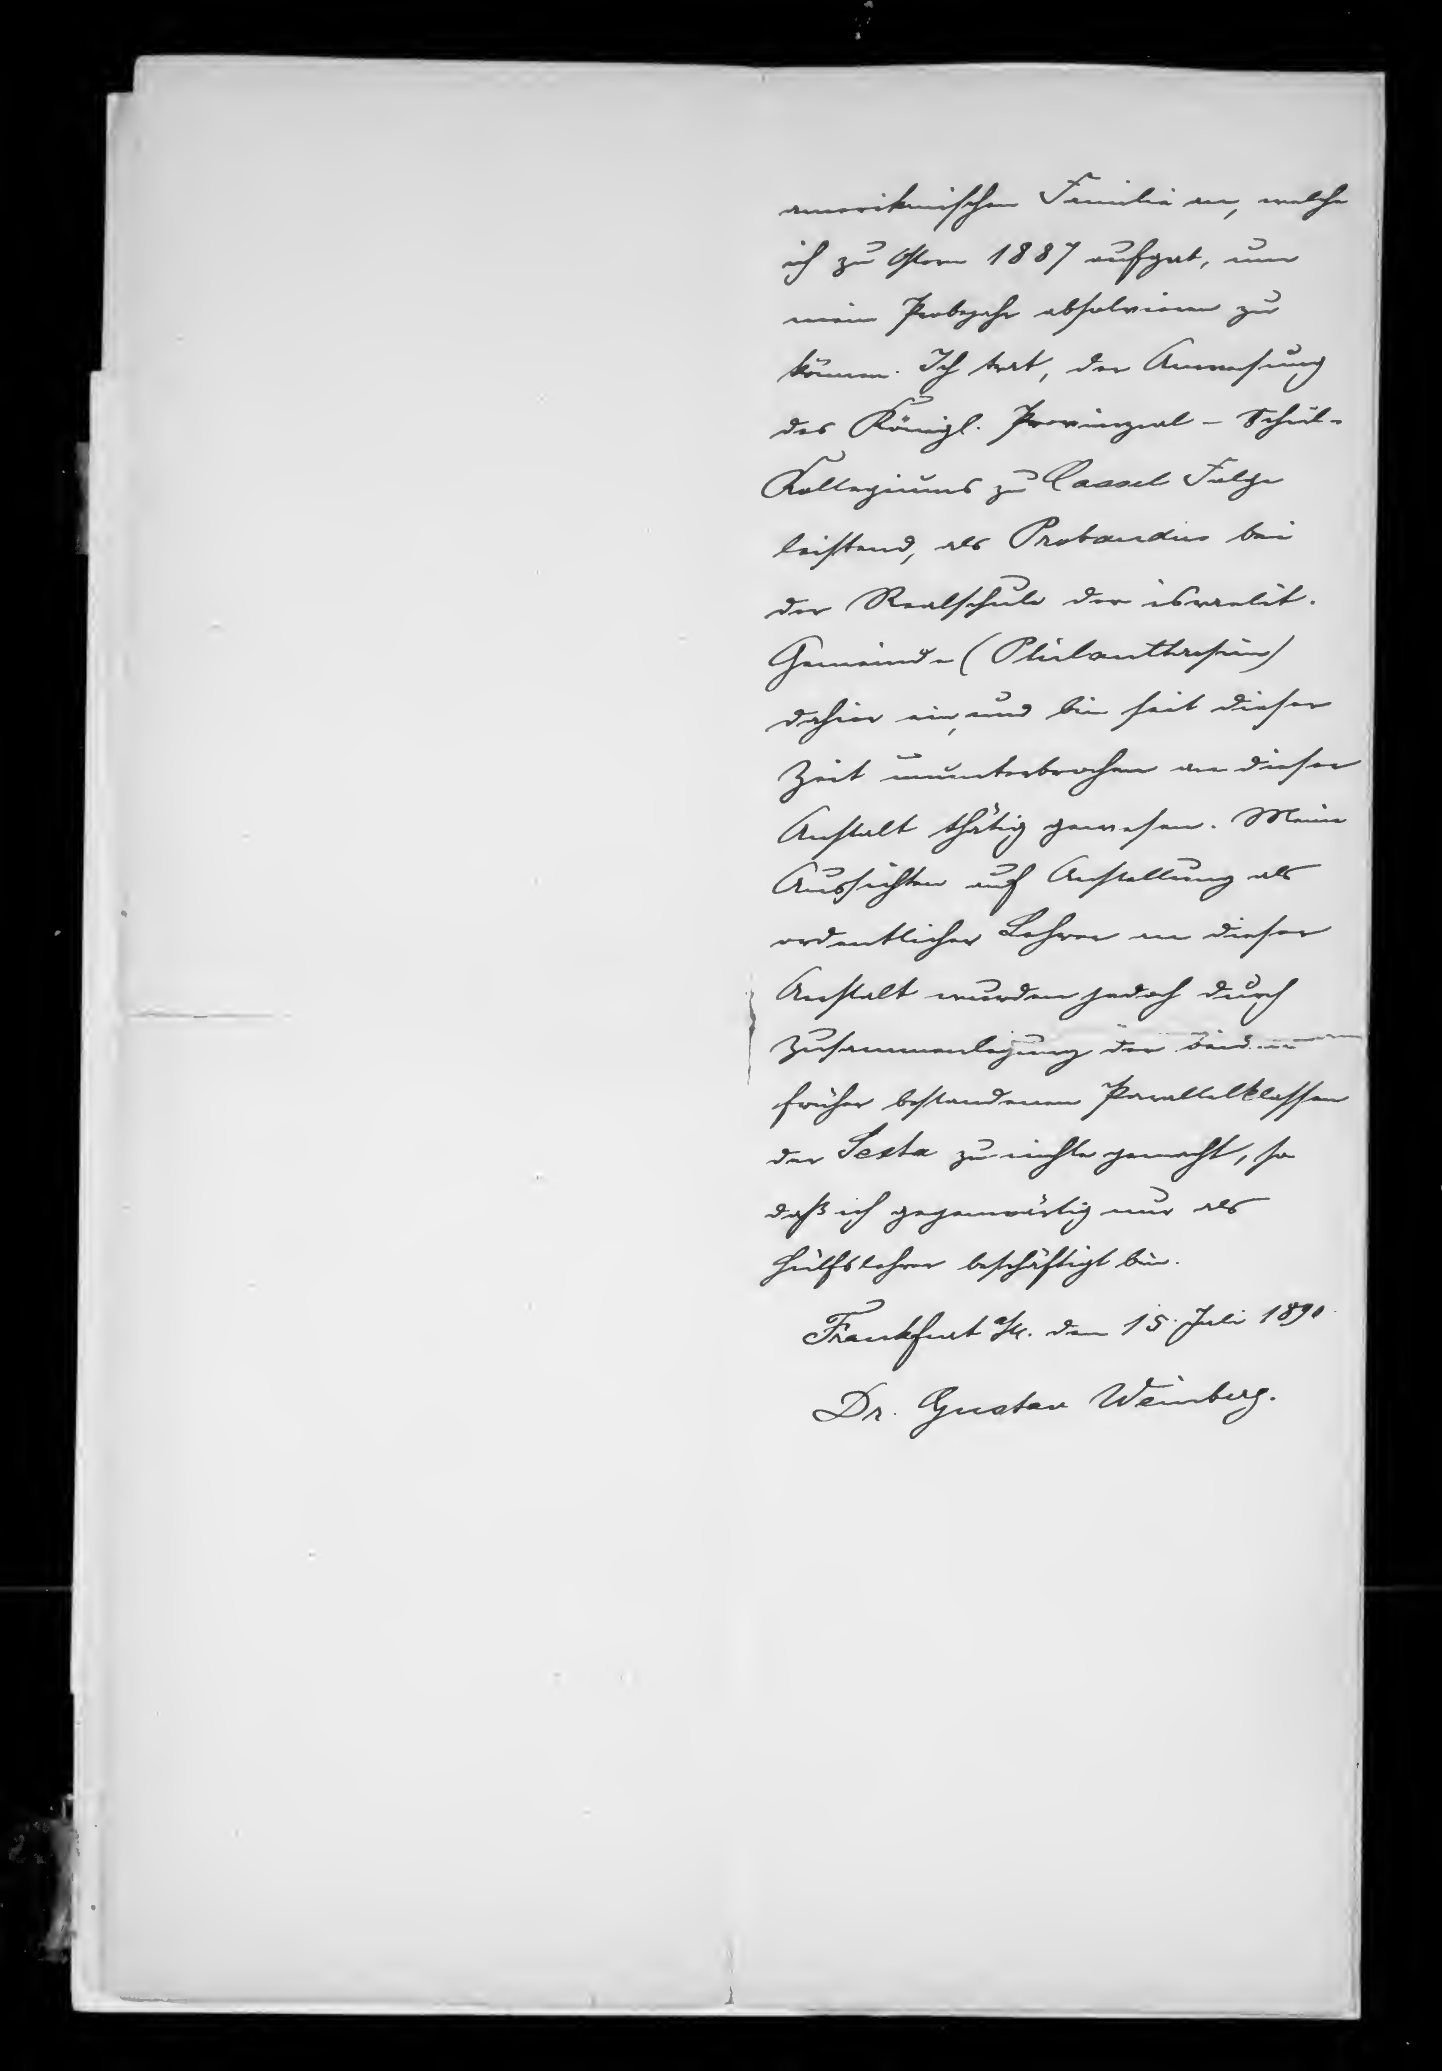 amerikanischen Familie an, welche
ich zu Ostern 1887 aufgab, um
mein Probejahr absolvieren zu
können. Ich trat, der Anweisung
des Königl. Provinzial-Schul-
Kollegiums zu Cassel Folge
leistend, als Probandus bei
der Realschule der israelit.
Gemeinde (Philanthropin)
dahier ein, und bin seit dieser
Zeit ununterbrochen an dieser
Anstalt thätig gewesen. Meine
Aussichten auf Anstellung als
ordentlicher Lehrer an dieser
Anstalt wurden jedoch durch
Zusammenlegung der beiden
früher bestandenen Parallelklassen
der Sexta zu nichte gemacht, so
daß ich gegenwärtig nur als
Hülfslehrer beschäftigt bin.
Frankfurt a/M. den 15. Juli 1890.
Dr. Gustav Weinberg.